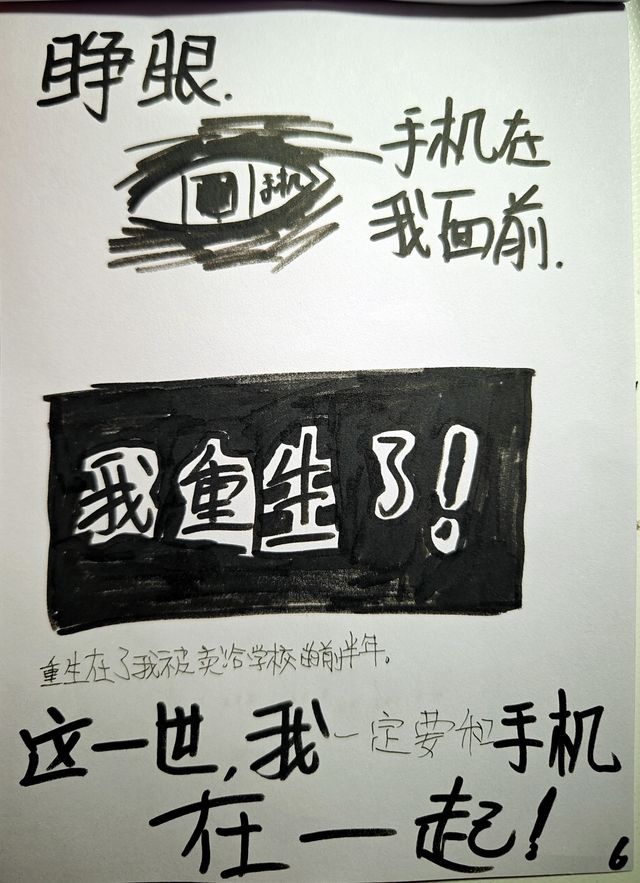 睁眼.
手机
手机在
我面前.
我重生了!
重生在了我被卖给学校的前半年.
这一世,我一定要和手机
在一起!
6